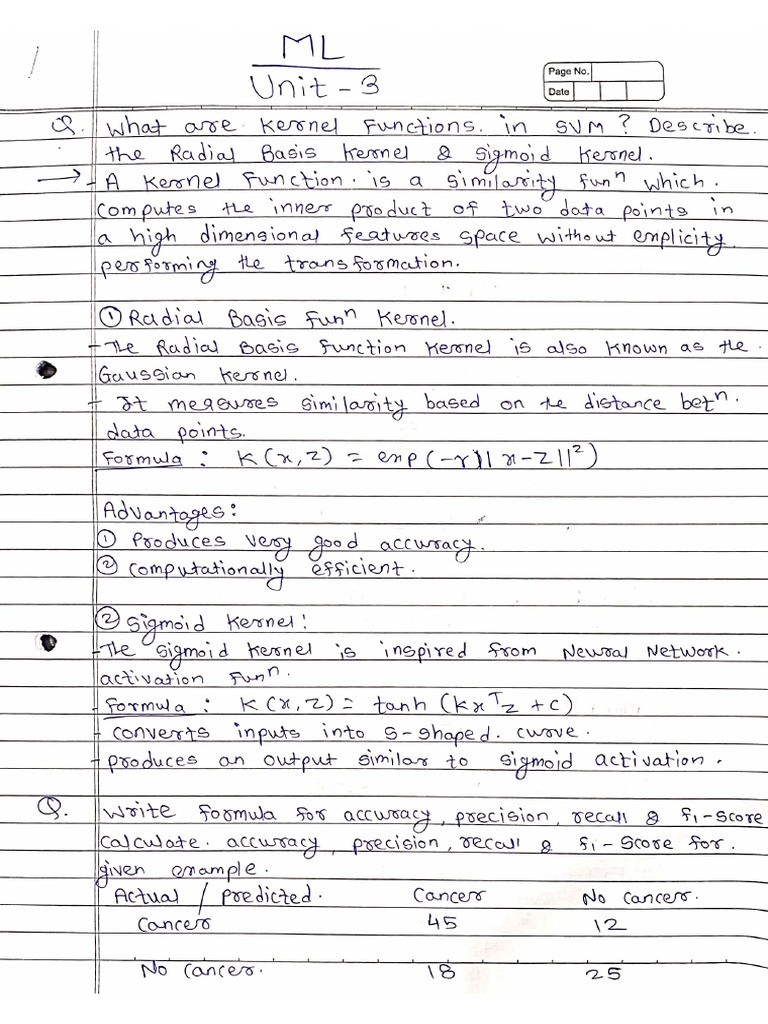 ML
Unit - 3
Page No.
Date
Q. What are Kernel Functions in SVM? Describe
the Radial Basis Kernel & Sigmoid Kernel.
→ - A Kernel Function is a similarity funⁿ which
computes the inner product of two data points in
a high dimensional features space without explicity
performing the transformation.
① Radial Basis Funⁿ Kernel.
- The Radial Basis Function Kernel is also known as the
Gaussian Kernel.
- It measures similarity based on the distance betⁿ
data points.
Formula : K(x,z) = exp(-γ||x-z||²)
Advantages:
① Produces very good accuracy.
② Computationally efficient.
② Sigmoid Kernel:
- The Sigmoid Kernel is inspired from Neural Network
activation funⁿ.
- Formula : K(x,z) = tanh (kxᵀz + c)
- converts inputs into S-shaped curve.
- produces an output similar to sigmoid activation.
Q. Write formula for accuracy, precision, recall & f1-score
calculate accuracy, precision, recall & f1-Score for
given example.
Actual / predicted. Cancer No cancer.
Cancer 45 12
No cancer. 18 25